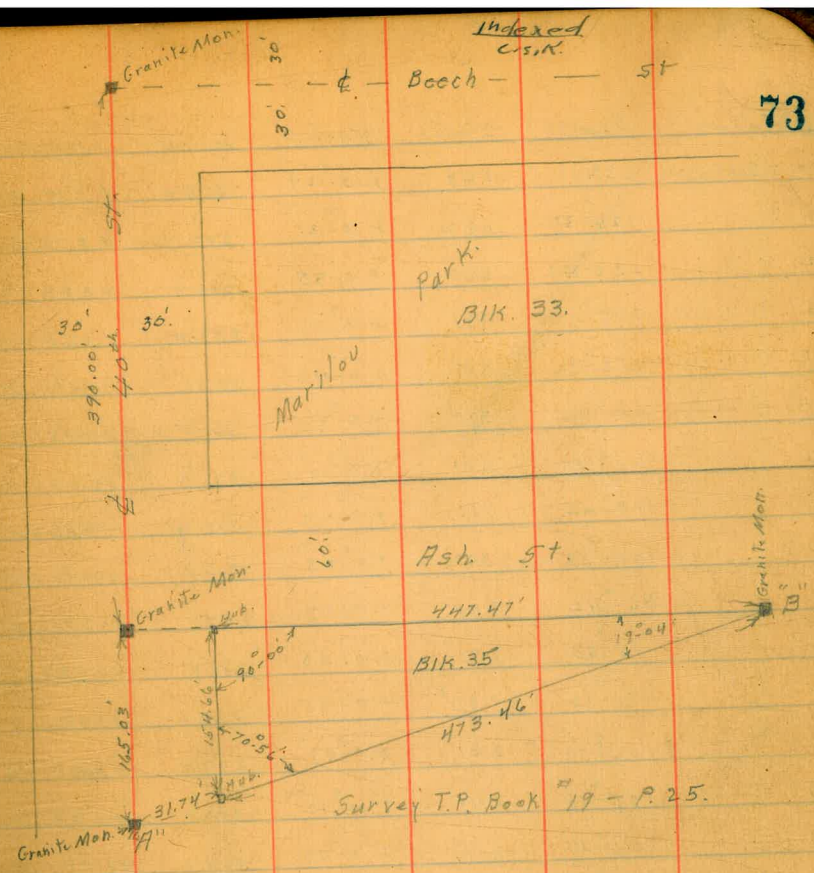 Indexed
C.S.K.
73
Granite Mon.
30'
30'
℄ Beech St
St.
40th
℄
30'
30'
390.00'
Park.
Marilou
Blk. 33.
60'
Ash St.
Granite Mon.
"B"
Granite Mon.
Hub.
447.47'
19°-04'
90°-00'
Blk. 35
154.66'
70°-56'
473.46'
165.03'
Hub.
31.74'
Granite Mon. "A"
Survey T.P. Book #19 - P. 25.